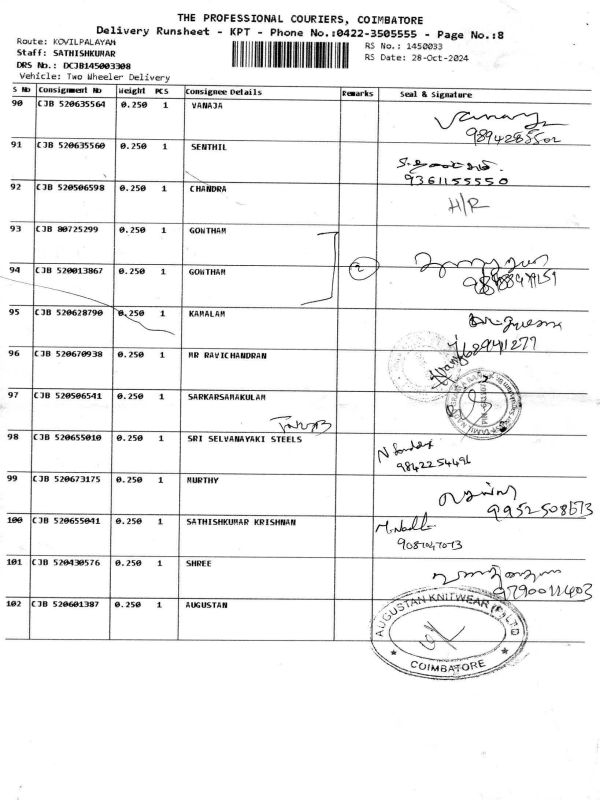 THE PROFESSIONAL COURIERS, COIMBATORE
Delivery Runsheet - KPT - Phone No.:0422-3505555 - Page No.:8
Route: KOVILPALAYAM
RS No.: 1450033
Staff: SATHISHKUMAR
RS Date: 28-Oct-2024
DRS No.: DCJB145003308
Vehicle: Two Wheeler Delivery
S No Consignment No Weight PCS Consignee Details Remarks Seal & Signature
90 CJB 520635564 0.250 1 VANAJA
9894285502
91 CJB 520635560 0.250 1 SENTHIL
9361155550
92 CJB 520506598 0.250 1 CHANDRA H/R
93 CJB 80725299 0.250 1 GOWTHAM
2
94 CJB 520013867 0.250 1 GOWTHAM
95 CJB 520628790 0.250 1 KAMALAM
96 CJB 520670938 0.250 1 MR RAVICHANDRAN
97 CJB 520506541 0.250 1 SARKARSAMAKULAM
98 CJB 520655010 0.250 1 SRI SELVANAYAKI STEELS
9842254496
99 CJB 520673175 0.250 1 MURTHY
9952508673
100 CJB 520655041 0.250 1 SATHISHKUMAR KRISHNAN
101 CJB 520430576 0.250 1 SHREE
102 CJB 520601387 0.250 1 AUGUSTAN
AUGUSTAN KNITWEAR (P) LTD
COIMBATORE